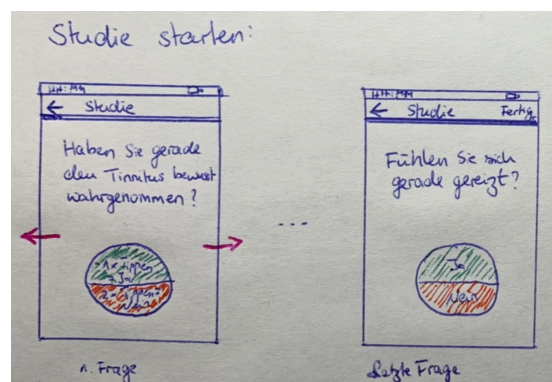 Studie starten:
HH:MM
← Studie
Haben Sie gerade
den Tinnitus bewusst
wahrgenommen?
1x tippen
= Ja
2x tippen =
Nein
1. Frage
...
HH:MM
← Studie Fertig
Fühlen Sie sich
gerade gereizt?
Ja
Nein
Letzte Frage